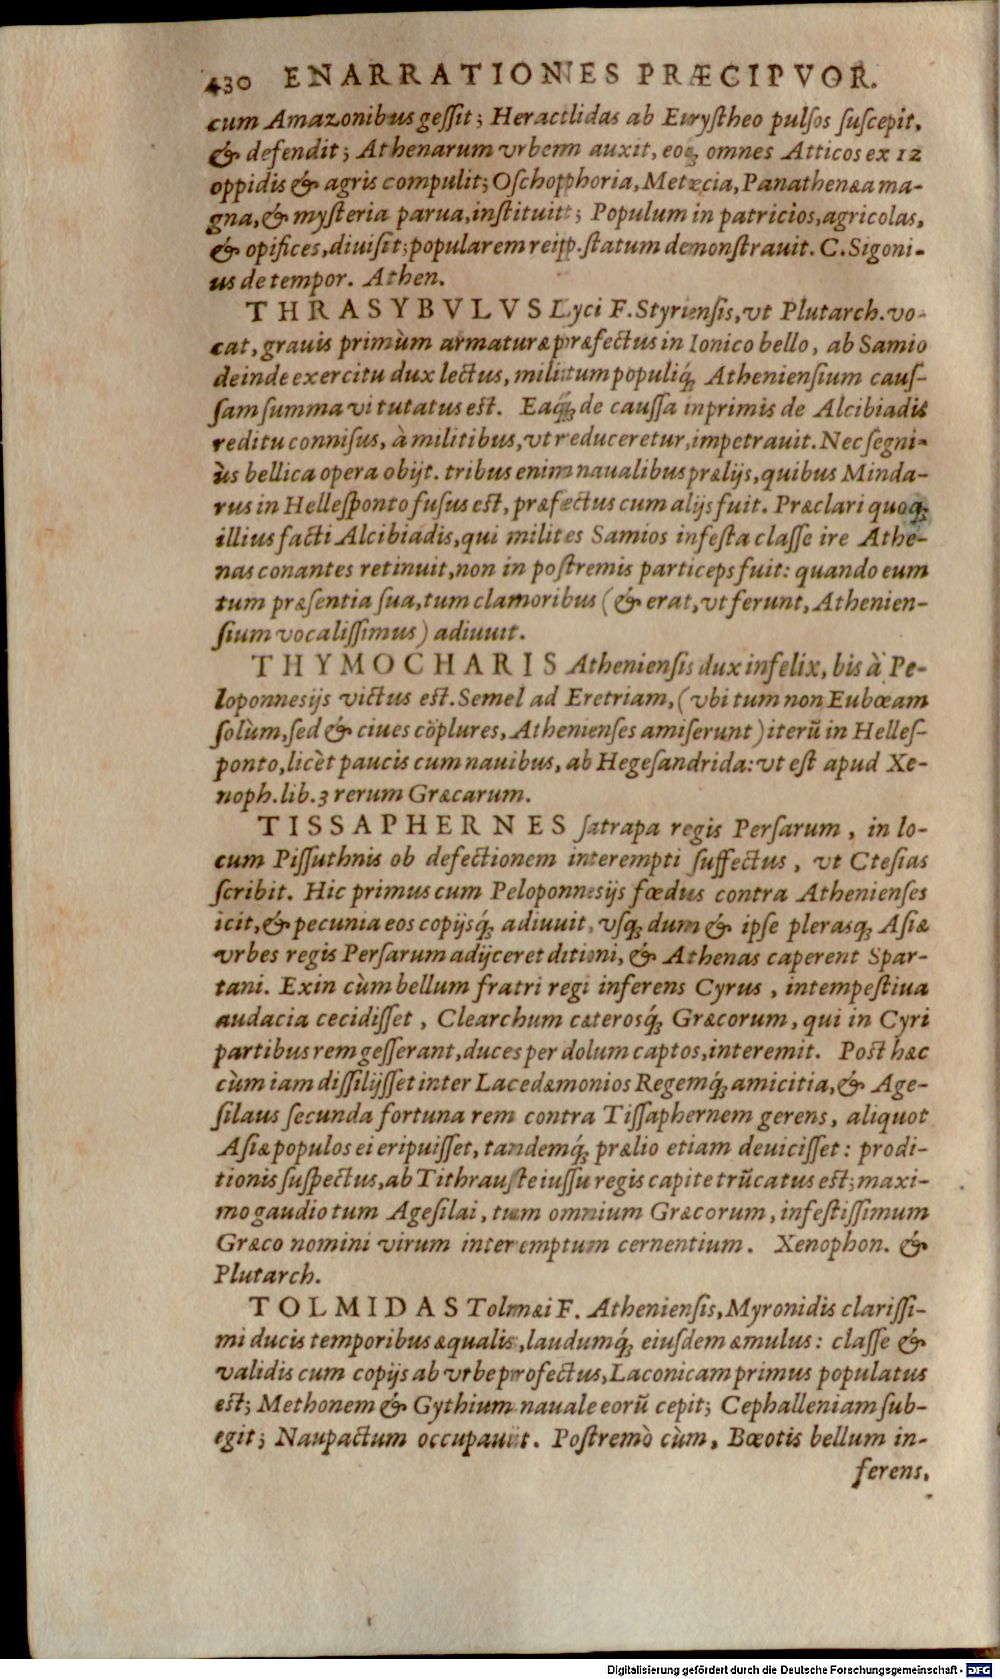 430 ENARRATIONES PRÆCIPVOR.
cum Amazonibus geſſit; Heraclidas ab Euryſtheo pulſos ſuſcepit,
& defendit; Athenarum vrbem auxit, eoq́; omnes Atticos ex 12
oppidis & agris compulit; Oſchopphoria, Metœcia, Panathenæa ma-
gna, & myſteria parua, inſtituit; Populum in patricios, agricolas,
& opifices, diuiſit; popularem reip. ſtatum demonſtrauit. C. Sigoni-
us de tempor. Athen.
THRASYBVLVS Lyci F. Styrienſis, vt Plutarch. vo-
cat, grauis primùm armaturæ præfectus in Ionico bello, ab Samio
deinde exercitu dux lectus, militum populiq́; Athenienſium cauſ-
ſam ſumma vi tutatus est. Eaq́; de cauſſa inprimis de Alcibiadis
reditu conniſus, à militibus, vt reduceretur, impetrauit. Nec ſegni-
ùs bellica opera obijt. tribus enim naualibus prælijs, quibus Minda-
rus in Helleſponto fuſus est, præfectus cum alijs fuit. Præclari quoq́;
illius facti Alcibiadis, qui milites Samios infeſta claſſe ire Athe-
nas conantes retinuit, non in poſtremis particeps fuit: quando eum
tum præſentia ſua, tum clamoribus (& erat, vt ferunt, Athenien-
ſium vocaliſſimus) adiuuit.
THYMOCHARIS Athenienſis dux infelix, bis à Pe-
loponnesijs victus est. Semel ad Eretriam, (vbi tum non Eubœam
ſolùm, ſed & ciues cõplures, Athenienſes amiſerunt) iterũ in Helleſ-
ponto, licèt paucis cum nauibus, ab Hegeſandrida: vt est apud Xe-
noph. lib. 3 rerum Græcarum.
TISSAPHERNES ſatrapa regis Perſarum, in lo-
cum Piſſuthnis ob defectionem interempti ſuffectus, vt Cteſias
ſcribit. Hic primus cum Peloponnesijs fœdus contra Athenienſes
icit, & pecunia eos copijsq́; adiuuit, vſq́; dum & ipſe plerasq́; Aſiæ
vrbes regis Perſarum adijceret ditioni, & Athenas caperent Spar-
tani. Exin cùm bellum fratri regi inferens Cyrus, intempeſtiua
audacia cecidiſſet, Clearchum cæterosq́; Græcorum, qui in Cyri
partibus rem geſſerant, duces per dolum captos, interemit. Post hæc
cùm iam diſſilijſſet inter Lacedæmonios Regemq́; amicitia, & Age-
ſilaus ſecunda fortuna rem contra Tiſſaphernem gerens, aliquot
Aſiæ populos ei eripuiſſet, tandemq́; prælio etiam deuiciſſet: prodi-
tionis ſuſpectus, ab Tithrauſte iuſſu regis capite trũcatus est; maxi-
mo gaudio tum Ageſilai, tum omnium Græcorum, infeſtiſſimum
Græco nomini virum interemptum cernentium. Xenophon. &
Plutarch.
TOLMIDAS Tolmæi F. Athenienſis, Myronidis clariſſi-
mi ducis temporibus æqualis, laudumq́; eiuſdem æmulus: claſſe &
validis cum copijs ab vrbe profectus, Laconicam primus populatus
est; Methonem & Gythium nauale eorũ cepit; Cephalleniam ſub-
egit; Naupactum occupauit. Poſtremò cùm, Bœotis bellum in-
ferens,
Digitalisierung gefördert durch die Deutsche Forschungsgemeinschaft - DFG